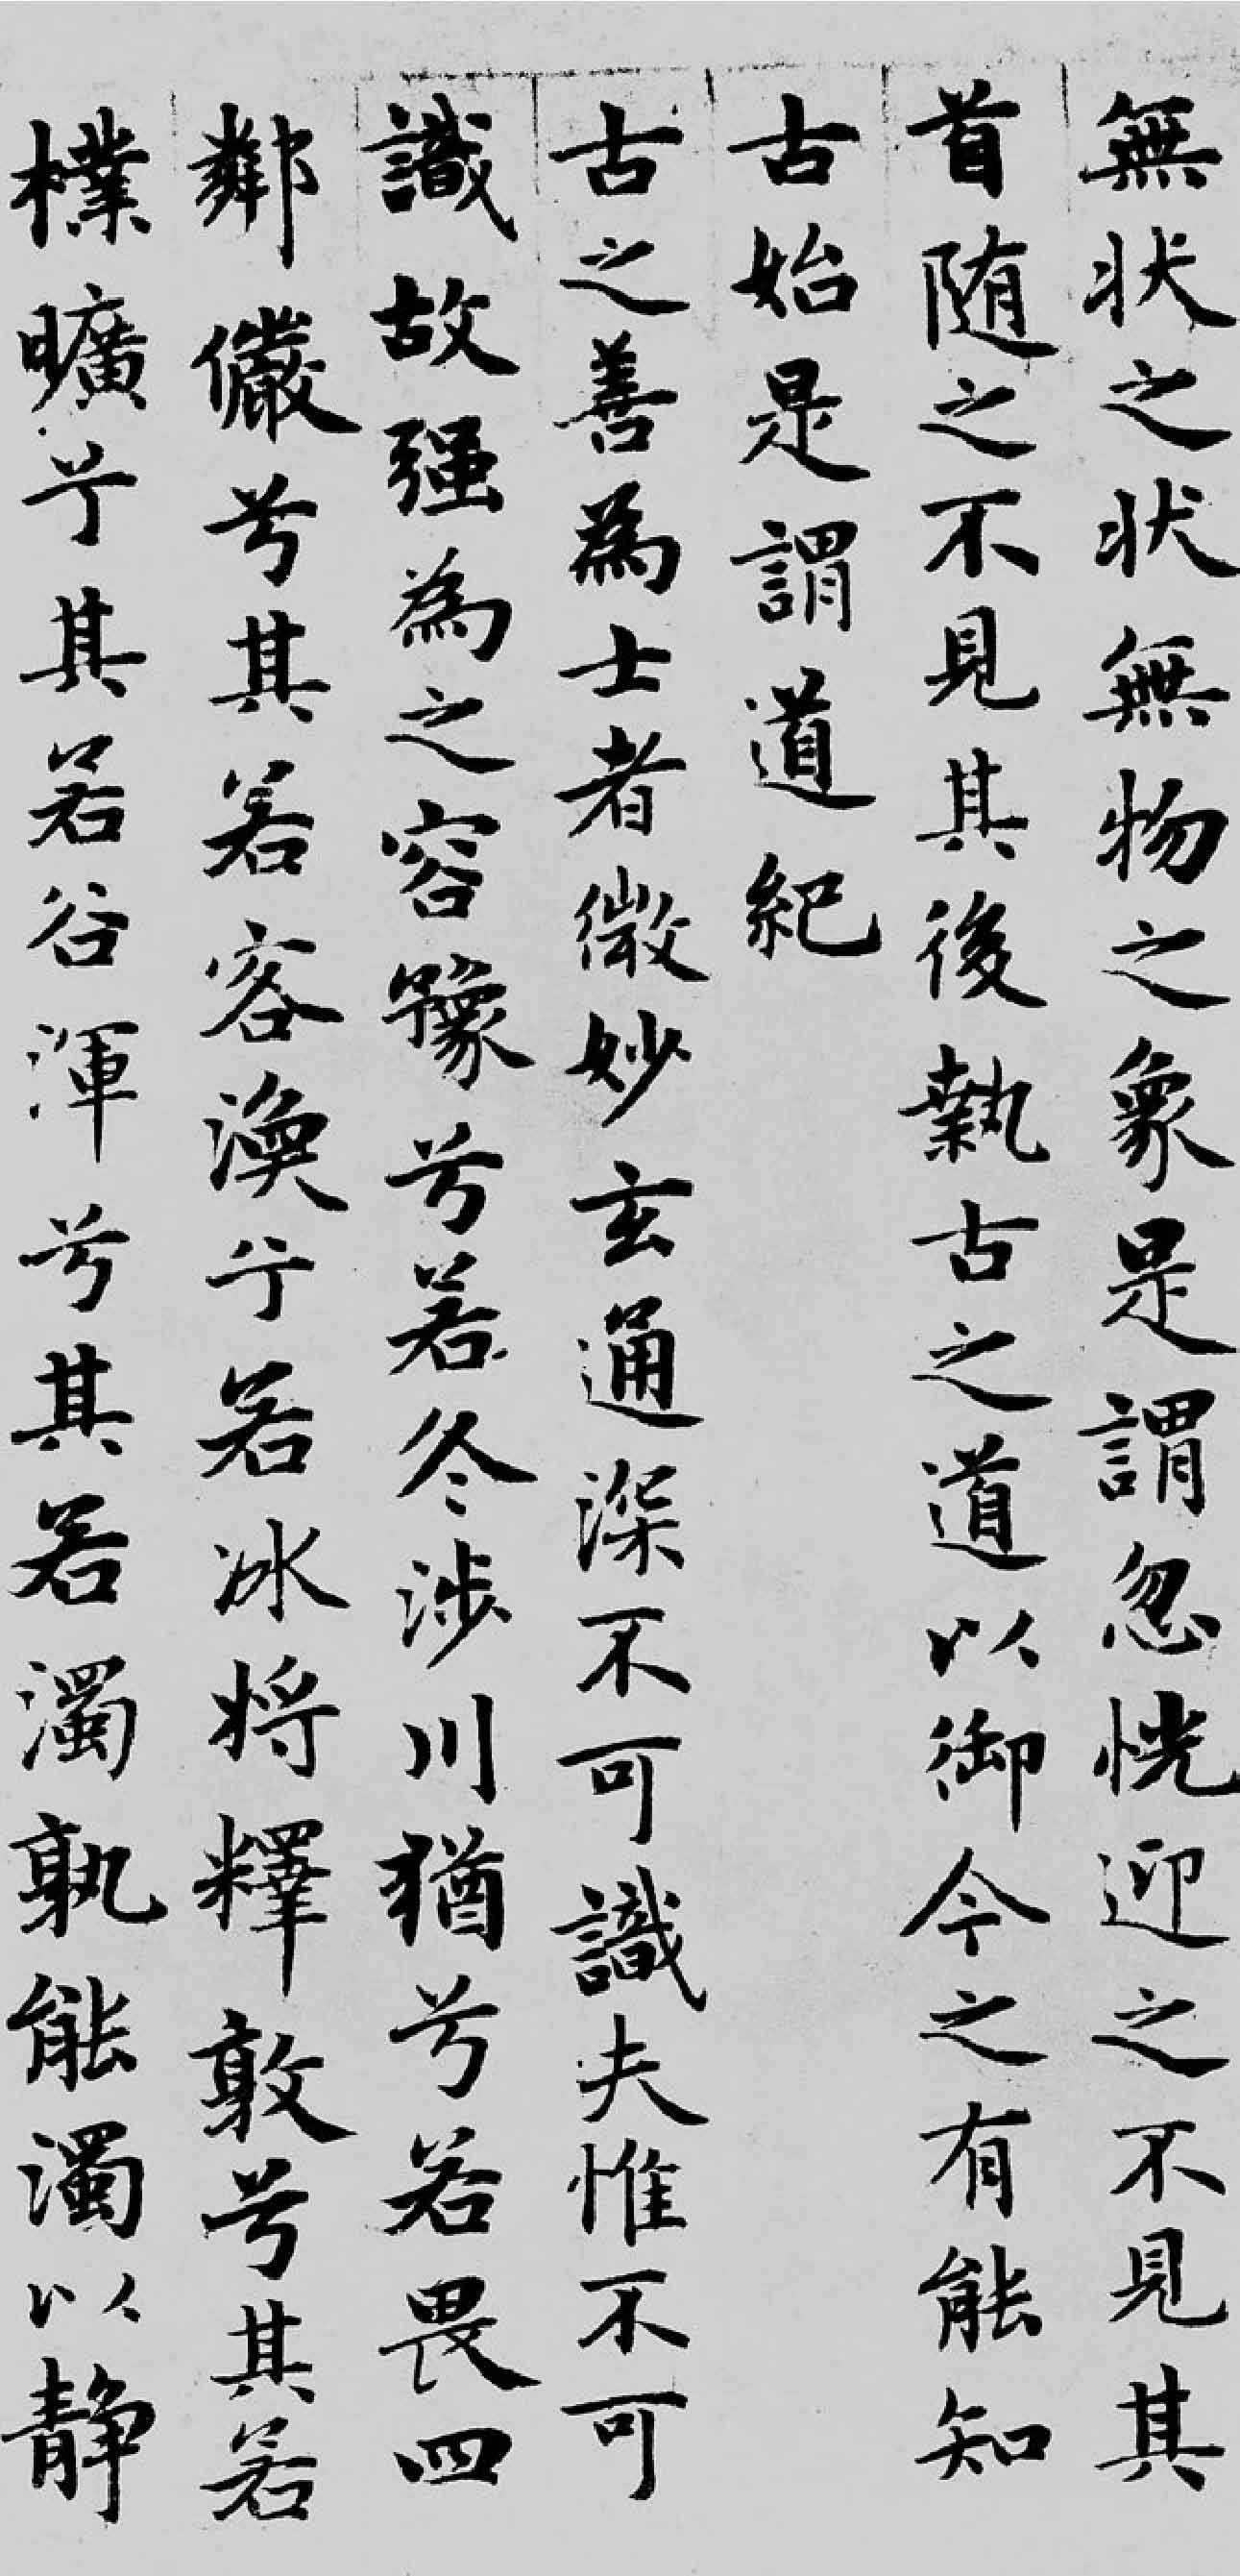 無状之状無物之象是謂忽恍迎之不見其
首随之不見其後執古之道以御今之有能知
古始是謂道紀
古之善為士者微妙玄通深不可識夫惟不可
識故强為之容豫兮若冬涉川猶兮若畏四
鄰儼兮其若客渙兮若冰將釋敦兮其若
樸曠兮其若谷渾兮其若濁孰能濁以静